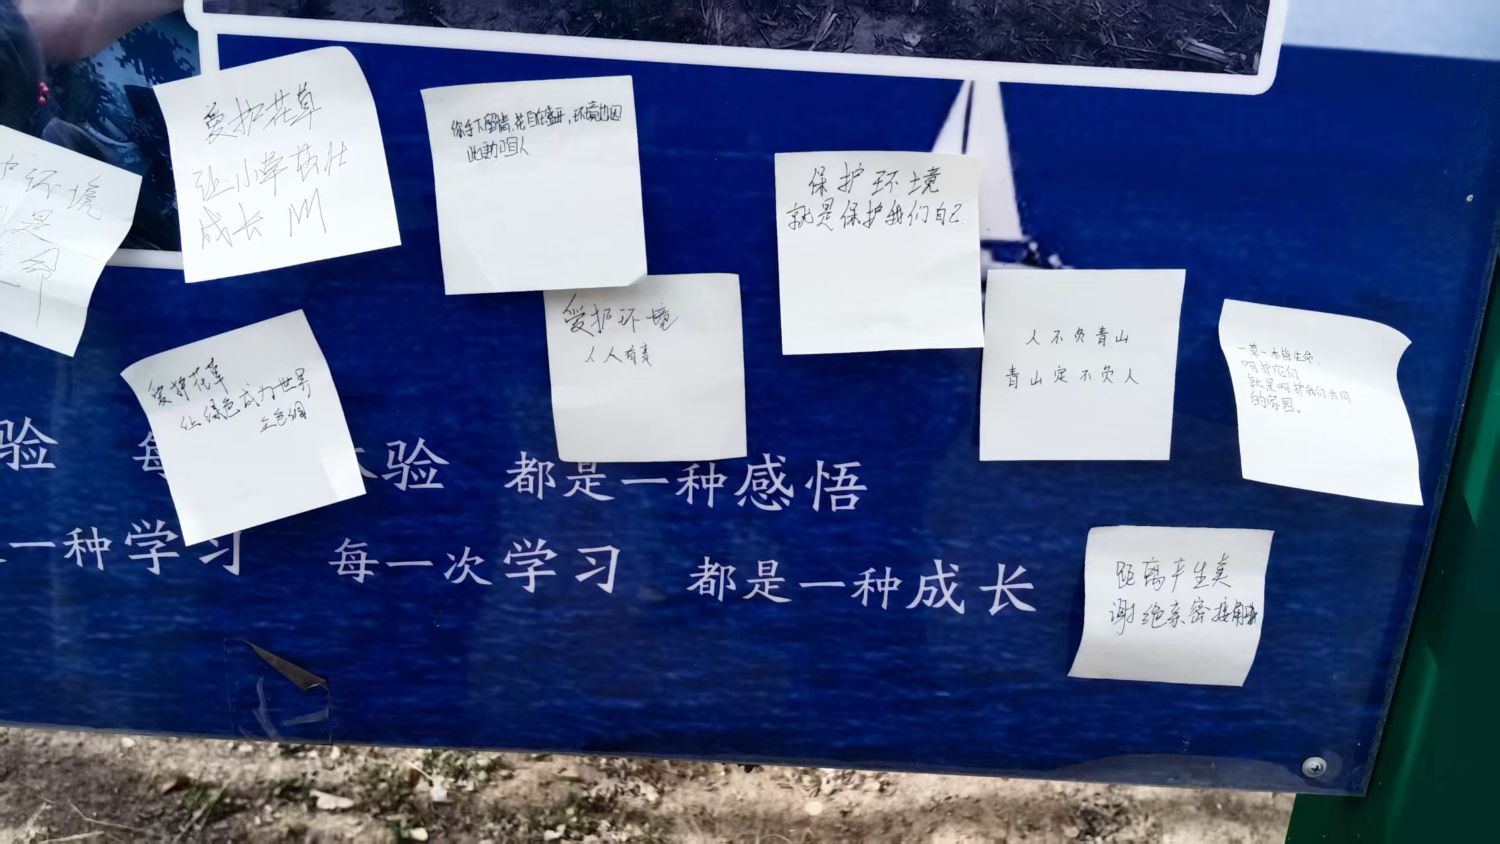 护环境
就是
爱护花草
让小草茁壮
成长
你手下留情,花自在盛开,环境也因
此动人
爱护环境
人人有责
保护环境
就是保护我们自己
人不负青山
青山定不负人
一草一木皆生命,
呵护它们
就是呵护我们共同
的家园。
爱护花草
让绿色成为世界
主色调
距离产生美
谢绝亲密接触
验 每 体验 都是一种感悟
一种学习 每一次学习 都是一种成长